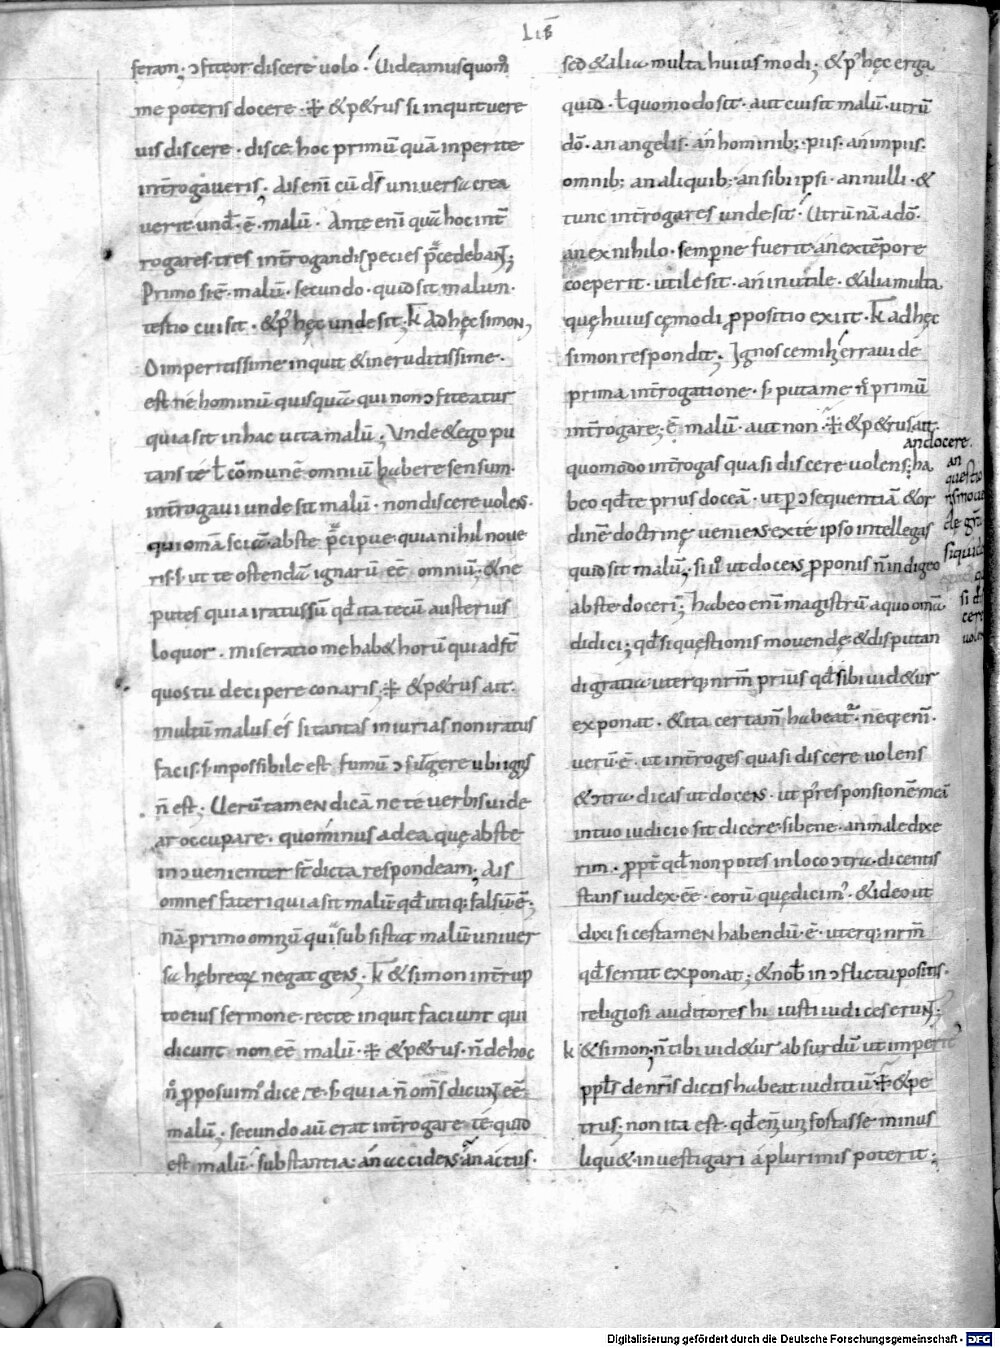 LIB̄
feram; ɔfiteor discere uolo. Uideamus quom̊
me poteris docere. & p&rus si inquit uere
uis discere. disce hoc primū quā inperite
int̄rogaueris; dis enī cū d̄s uniuersa crea
uerit und̄. ē. malū. Ante enī quā hoc int̄
rogares. tres int̄rogandi species p̄cedebant;
Primo si ē. malū. secundo. quid sit malum.
testio cui sit. & p̄ hęc unde sit; k ad hęc simon,
O imperitissime inquit & ineruditissime.
est ne hominū quisquā. qui non ɔfiteatur
quia sit in hac uita malū; Unde & ego pu
tans té ł cōmunē omniū habere sensum.
int̄rogaui unde sit malū. non discere uolens.
qui omā sciā. abs te p̄cipue. quia nihil noue
ris. s; ut te ostendā ignarū ēē omniū; & ne
putes quia iratus sū qd̄ ita tecū austerius
loquor. miseratio me hab& horū qui adst̄
quos tu decipere conaris; & p&rus ait.
multū malus és si tantas iniurias non iratus
facis. s; inpossibile est fumū ɔsurgere ubi ignis
n̄ est; Uerūtamen dicā ne té uerbis uide
ar occupare. quominus ad ea quę abs te
inɔuenienter st̄ dicta respondeam; dis
omnes fateri quia sit malū qd̄ utiq; falsū ē;
nā primo omniū qui subsistat malū uniuer
sa hębreoꝝ negat gens; k & simon int̄rup
to eius sermone. recte inquit faciunt qui
dicunt non ēē malū. & p&rus. n̄ de hoc
n̊ p̱posuim' dicere. s; quia n̄ om̄s dicunt ēē
malū. secundo aū erat int̄rogare té. quid
est malū. substantia. án accidens. án actus.
sed & alia multa huius modi; & p̄ hęc erga
quid. ł quomodo sit. aut cui sit malū. utrū
dō. an angelis. án hominib; piis. án impiis.
omnib; an aliquib; an sibi ipsi. an nulli. &
tunc int̄rogares unde sit. Utrū nā a dō.
an ex nihilo. semp̱ne fuerit. an ex tēpore
coeperit. utile sit. án inutile. & alia multa
quę huiuscęmodi p̱positio exiit. k ad hęc
simon respondit; Ignosce mihi erraui de
prima int̄rogatione. s; puta me n̄ primū
int̄rogare; ē malū. aut non. & p&rus ait.
quomodo int̄rogas quasi discere uolens; an docere. ha
beo qd̄ te prius doceā. ut p̱ ɔsequentiā & or
dinē doctrinę ueniens ex té ipso intellegas
quid sit malū; si u° ut docens p̱ponis n̄ indigeo
abs te doceri; habeo enī magistrū a quo omā
didici; qd̄ si questionis mouendę & disputan
di gratia uterq; nr̄m prius qd̄ sibi uid&ur
exponat. & ita certam̄ habeat'. neq; enī.
uerū ē. ut int̄roges quasi discere uolens
& ɔtra dicas ut docens. ut p' responsionē meā
in tuo iudicio sit dicere. si bene. an male dixe
rim. p̱pt̄ qd̄ non potes in loco ɔtra dicentis
stans iudex ēē. eorū quę dicim'. & ideo ut
dixi si certamen habendū ē. uterq; nr̄m
qd̄ sentit exponat; & nob̄ in ɔflictu positis.
religiosi auditores hi iusti iudices erunt;
k & simon; n̄ tibi uid&ur absurdū ut imperit'
pp̄ls de nr̄is dictis habeat iuditiū. & pe
trus; non ita est. qd̄ enī uni fo⟨r⟩tasse minus
liqu&. inuestigari á plurimis poterit;